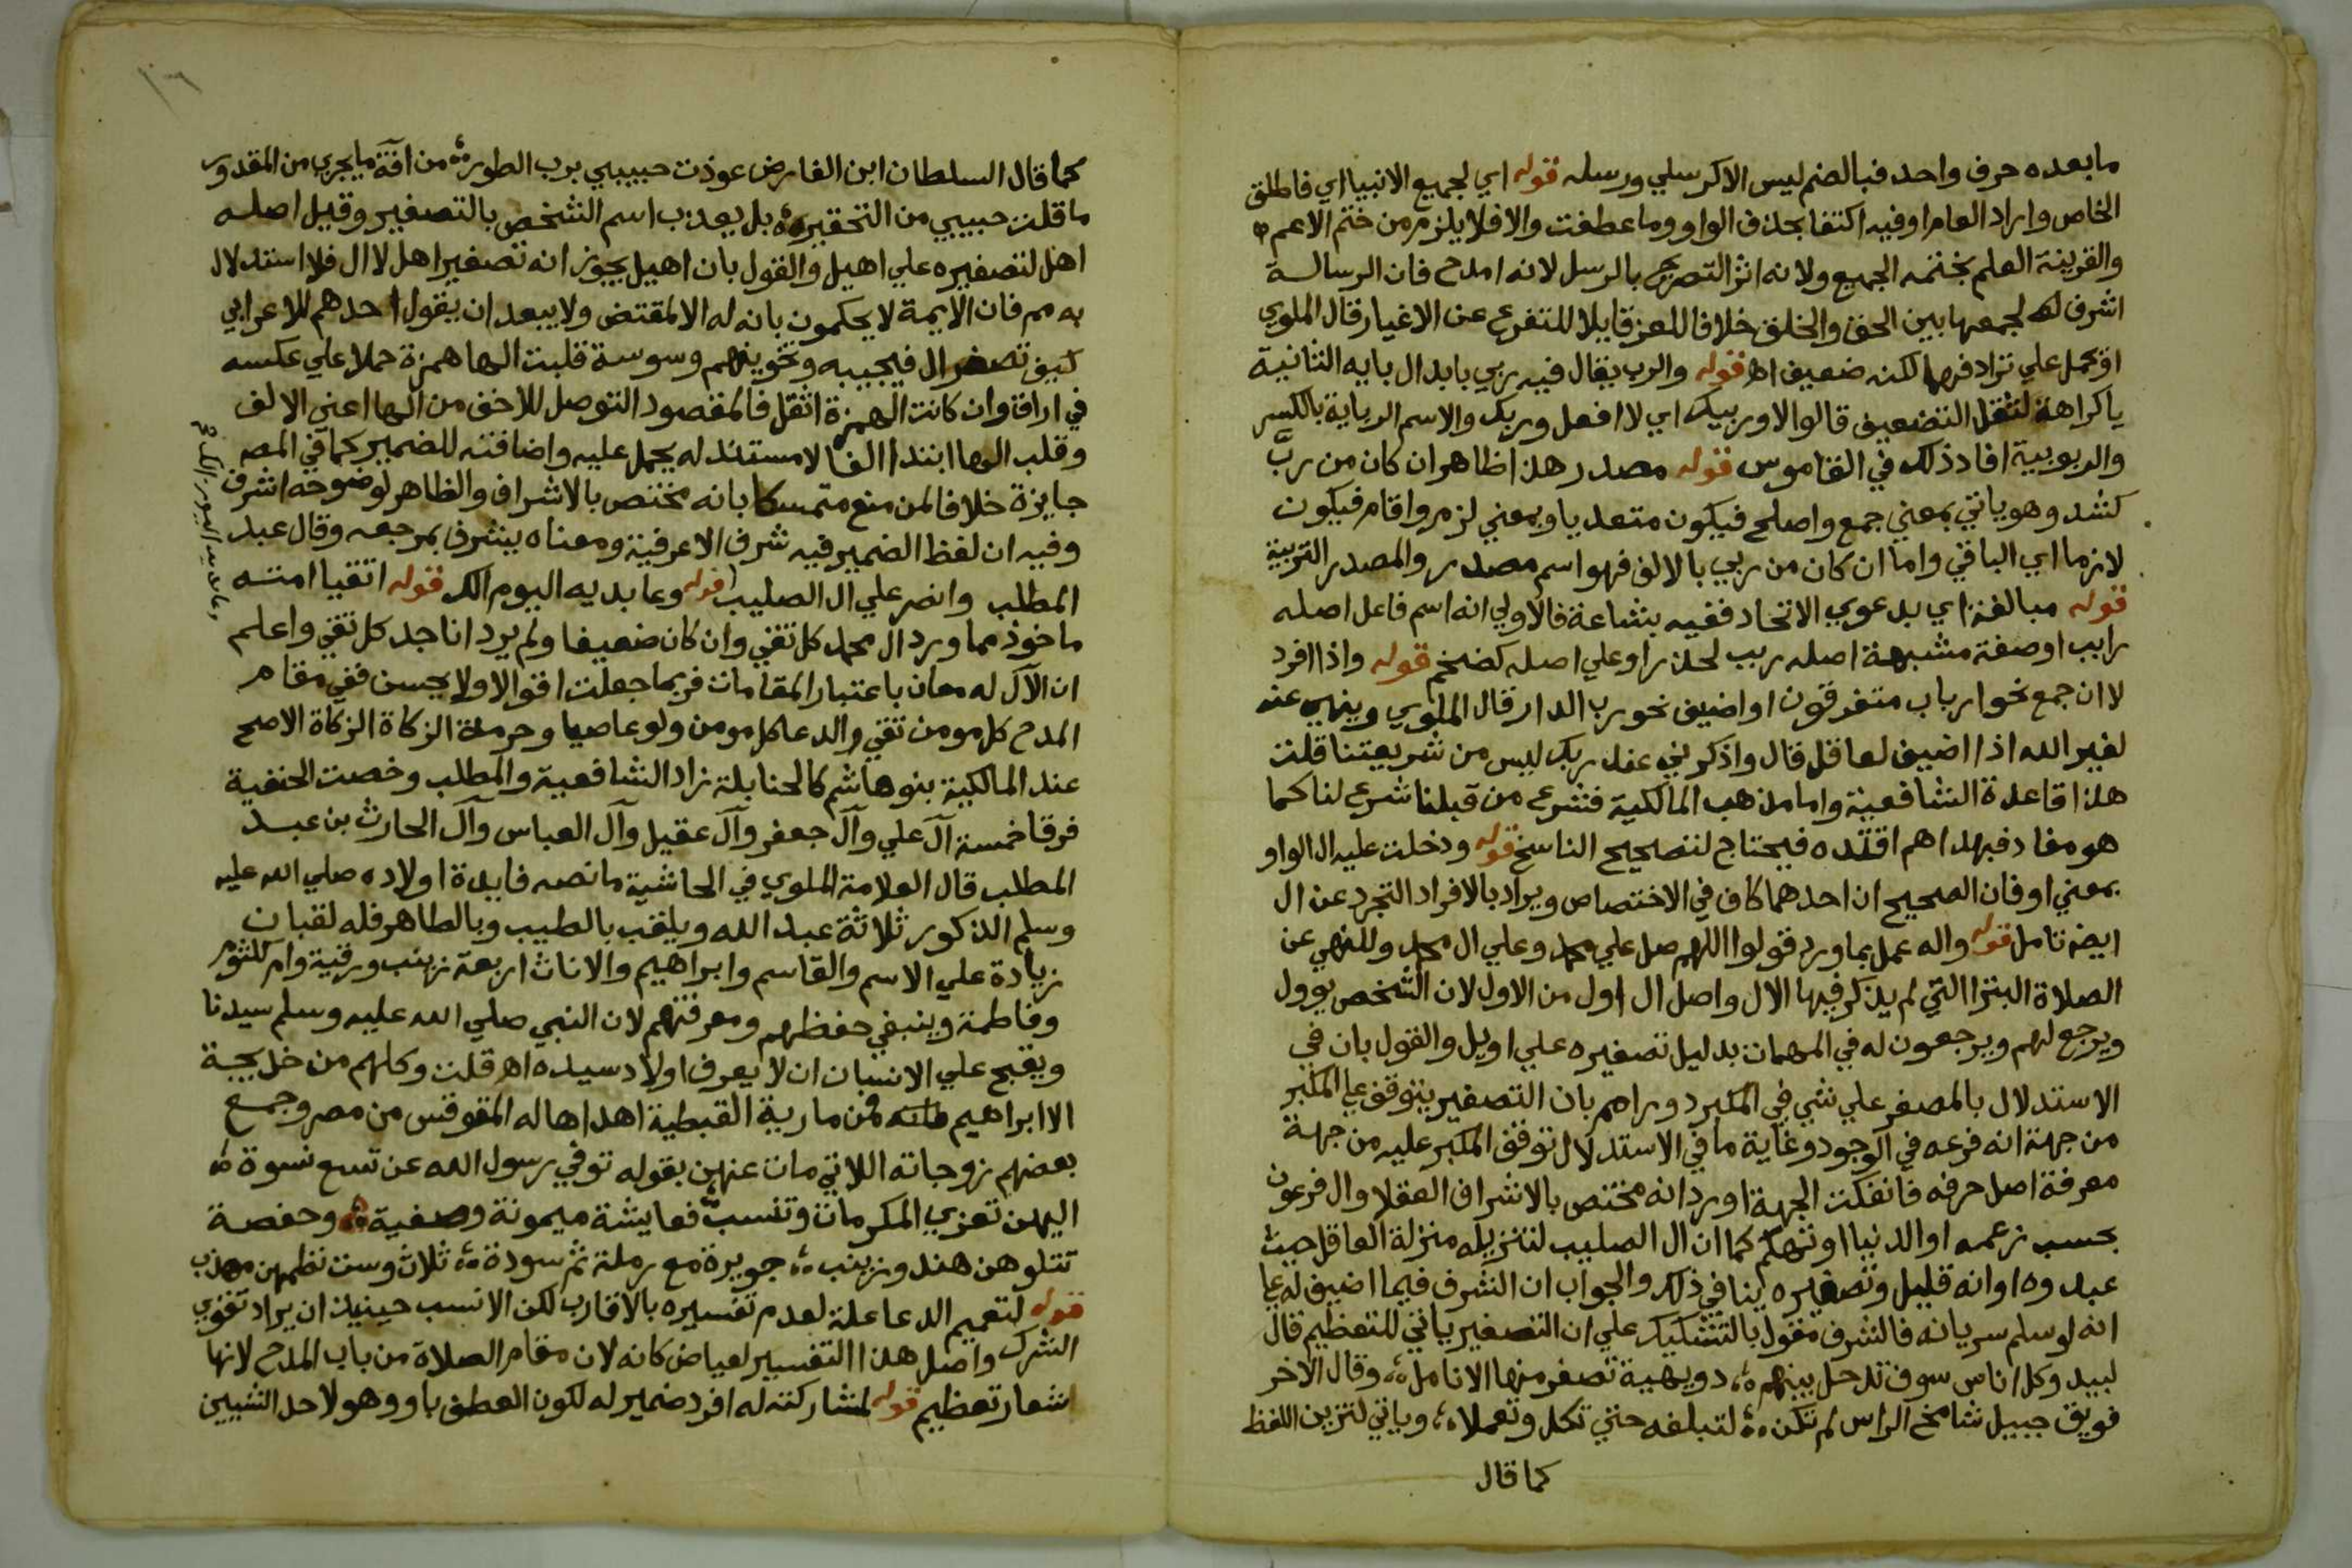 ما بعده حرف واحد فبالضم ليس الا كرسلي ورسله قوله اي لجميع الانبيا اي فاطلق
الخاص واراد العام او فيه اكتفا بحذف الواو وما عطفت والا فلا يلزم من ختم الاعم
والقرينة العلم بختمه الجميع ولانه اثر التصريح بالرسل لانه امدح فان الرسالة
اشرف لجمعها بين الحق والخلق خلافا للعز قايلا للتفرع عن الاغيار قال الملوي
او يحمل علي ترادفهما لكنه ضعيف اه قوله والرب يقال فيه ربي بابدال بايه الثانية
يا كراهة لثقل التضعيف قالوا لا وربيك اي لا افعل وربك والاسم الرباية بالكسر
والربوبية افاد ذلك في القاموس قوله مصدر هذا ظاهر ان كان من ربّ
كشد وهو ياتي بمعني جمع واصلح فيكون متعديا وبمعني لزم واقام فيكون
لازما اي الباقي واما ان كان من ربي بالالف فهو اسم مصدر والمصدر التربية
قوله مبالغة اي بدعوي الاتحاد ففيه بشاعة فالاولي انه اسم فاعل اصله
رابب او صفة مشبهة اصله ربب لحذر او علي اصله كضخم قوله واذا افرد
لا ان جمع نحو ارباب متفرقون او اضيف نحو رب الدار قال الملوي وينهي عنه
لغير الله اذا اضيف لعاقل قال واذكرني عند ربك ليس من شريعتنا قلت
هذا قاعدة الشافعية واما مذهب المالكية فشرع من قبلنا شرع لنا كما
هو مفاد فبهداهم اقتده فيحتاج لتصحيح الناسخ قوله ودخلت عليه ال الواو
بمعني او فان الصحيح ان احدهما كاف في الاختصاص ويراد بالافراد التجرد عن ال
ايضا تامل قوله واله عمل بما ورد قولوا اللهم صل علي محمد وعلي ال محمد وللنهي عن
الصلاة البترا التي لم يذكر فيها الال واصل ال اول من الاول لان الشخص يوول
ويرجع لهم ويرجعون له في المهمات بدليل تصغيره علي اويل والقول بان في
الاستدلال بالمصغر علي شي في المكبر دورا مم بان التصغير يتوقف علي المكبر
من جهة انه فرعه في الوجود وغاية ما في الاستدلال توقف المكبر عليه من جهة
معرفة اصل حرفه فانفكت الجهة اورد انه مختص بالاشراف العقلا وال فرعون
بحسب زعمه او الدنيا او تهكم كما ان ال الصليب لتنزيله منزلة العاقل حيث
عبدوه او انه قليل وتصغيره ينافي ذلك والجواب ان الشرف فيما اضيف له علي
انه لو سلم سريانه فالشرف مقول بالتشكيك علي ان التصغير ياتي للتعظيم قال
لبيد وكل اناس سوف تدخل بينهم دويهية تصفر منها الانامل وقال الاخر
فويق جبيل شامخ الراس لم تكن لتبلغه حتي تكل وتعملا وياتي لتزين اللفظ
كما قال
١٦
كما قال السلطان ابن الفارض عوذت حبيبي برب الطور من افة ما يجري من المقدور
ما قلت حبيبي من التحقير بل يعذب اسم الشخص بالتصغير وقيل اصله
اهل لتصغيره علي اهيل والقول بان اهيل يجوز انه تصغير اهل لا ال فلا استدلال
به مم فان الايمة لا يحكمون بانه له الا لمقتض ولا يبعد ان يقول احدهم للاعرابي
كيف تصغر ال فيجيبه وتخوينهم وسوسة قلبت الها همزة حملا علي عكسه
في اراق وان كانت الهمزة اثقل فالمقصود التوصل للاخف من الها اعني الالف
وقلب الها ابتدا الفا لا مستند له يحمل عليه واضافته للضمير كما في المصـ
جايزة خلافا لمن منع متمسكا بانه مختص بالاشراف والظاهر لوضوحه اشرف
وفيه ان لفظ الضمير فيه شرف الاعرفية ومعناه يشرف بمرجعه وقال عبد
المطلب وانصر علي ال الصليب قوله وعابديه اليوم الك قوله اتقيا امته
ماخوذ مما ورد ال محمد كل تقي وان كان ضعيفا ولم يرد انا جد كل تقي واعلم
ان الآل له معان باعتبار المقامات فربما جعلت اقوالا ولا يحسن ففي مقام
المدح كل مومن تقي والدعا كل مومن ولو عاصيا وحرمة الزكاة الزكاة الاصح
عند المالكية بنو هاشم كالحنابلة زاد الشافعية والمطلب وخصت الحنفية
فرقا خمسة آل علي وآل جعفر وآل عقيل وآل العباس وآل الحارث بن عبد
المطلب قال العلامة الملوي في الحاشية ما نصه فايدة اولاده صلي الله عليه
وسلم الذكور ثلاثة عبد الله ويلقب بالطيب وبالطاهر فله لقبان
زيادة علي الاسم والقاسم وابراهيم والاناث اربعة زينب ورقية وام كلثوم
وفاطمة وينبغي حفظهم ومعرفتهم لان النبي صلي الله عليه وسلم سيدنا
ويقبح علي الانسان ان لا يعرف اولاد سيده اه قلت وكلهم من خديجة
الا ابراهيم فمن مارية القبطية اهداها له المقوقس من مصر وجمع
بعضهم زوجاته اللاتي مات عنهن بقوله توفي رسول الله عن تسع نسوة
اليهن تعزي المكرمات وتنسب فعايشة ميمونة وصفية وحفصة
تتلوهن هند وزينب جويرة مع رملة ثم سودة ثلاث وست نظمهن مهذب
قوله لتعميم الدعا علة لعدم تفسيره بالاقارب لكن الانسب حينيذ ان يراد تقوي
الشرك واصل هذا التفسير لعياض كانه لان مقام الصلاة من باب المدح لانها
اشعار تعظيم قوله لمشاركته له افرد ضمير له لكون العطف باو وهو لاحد الشيين